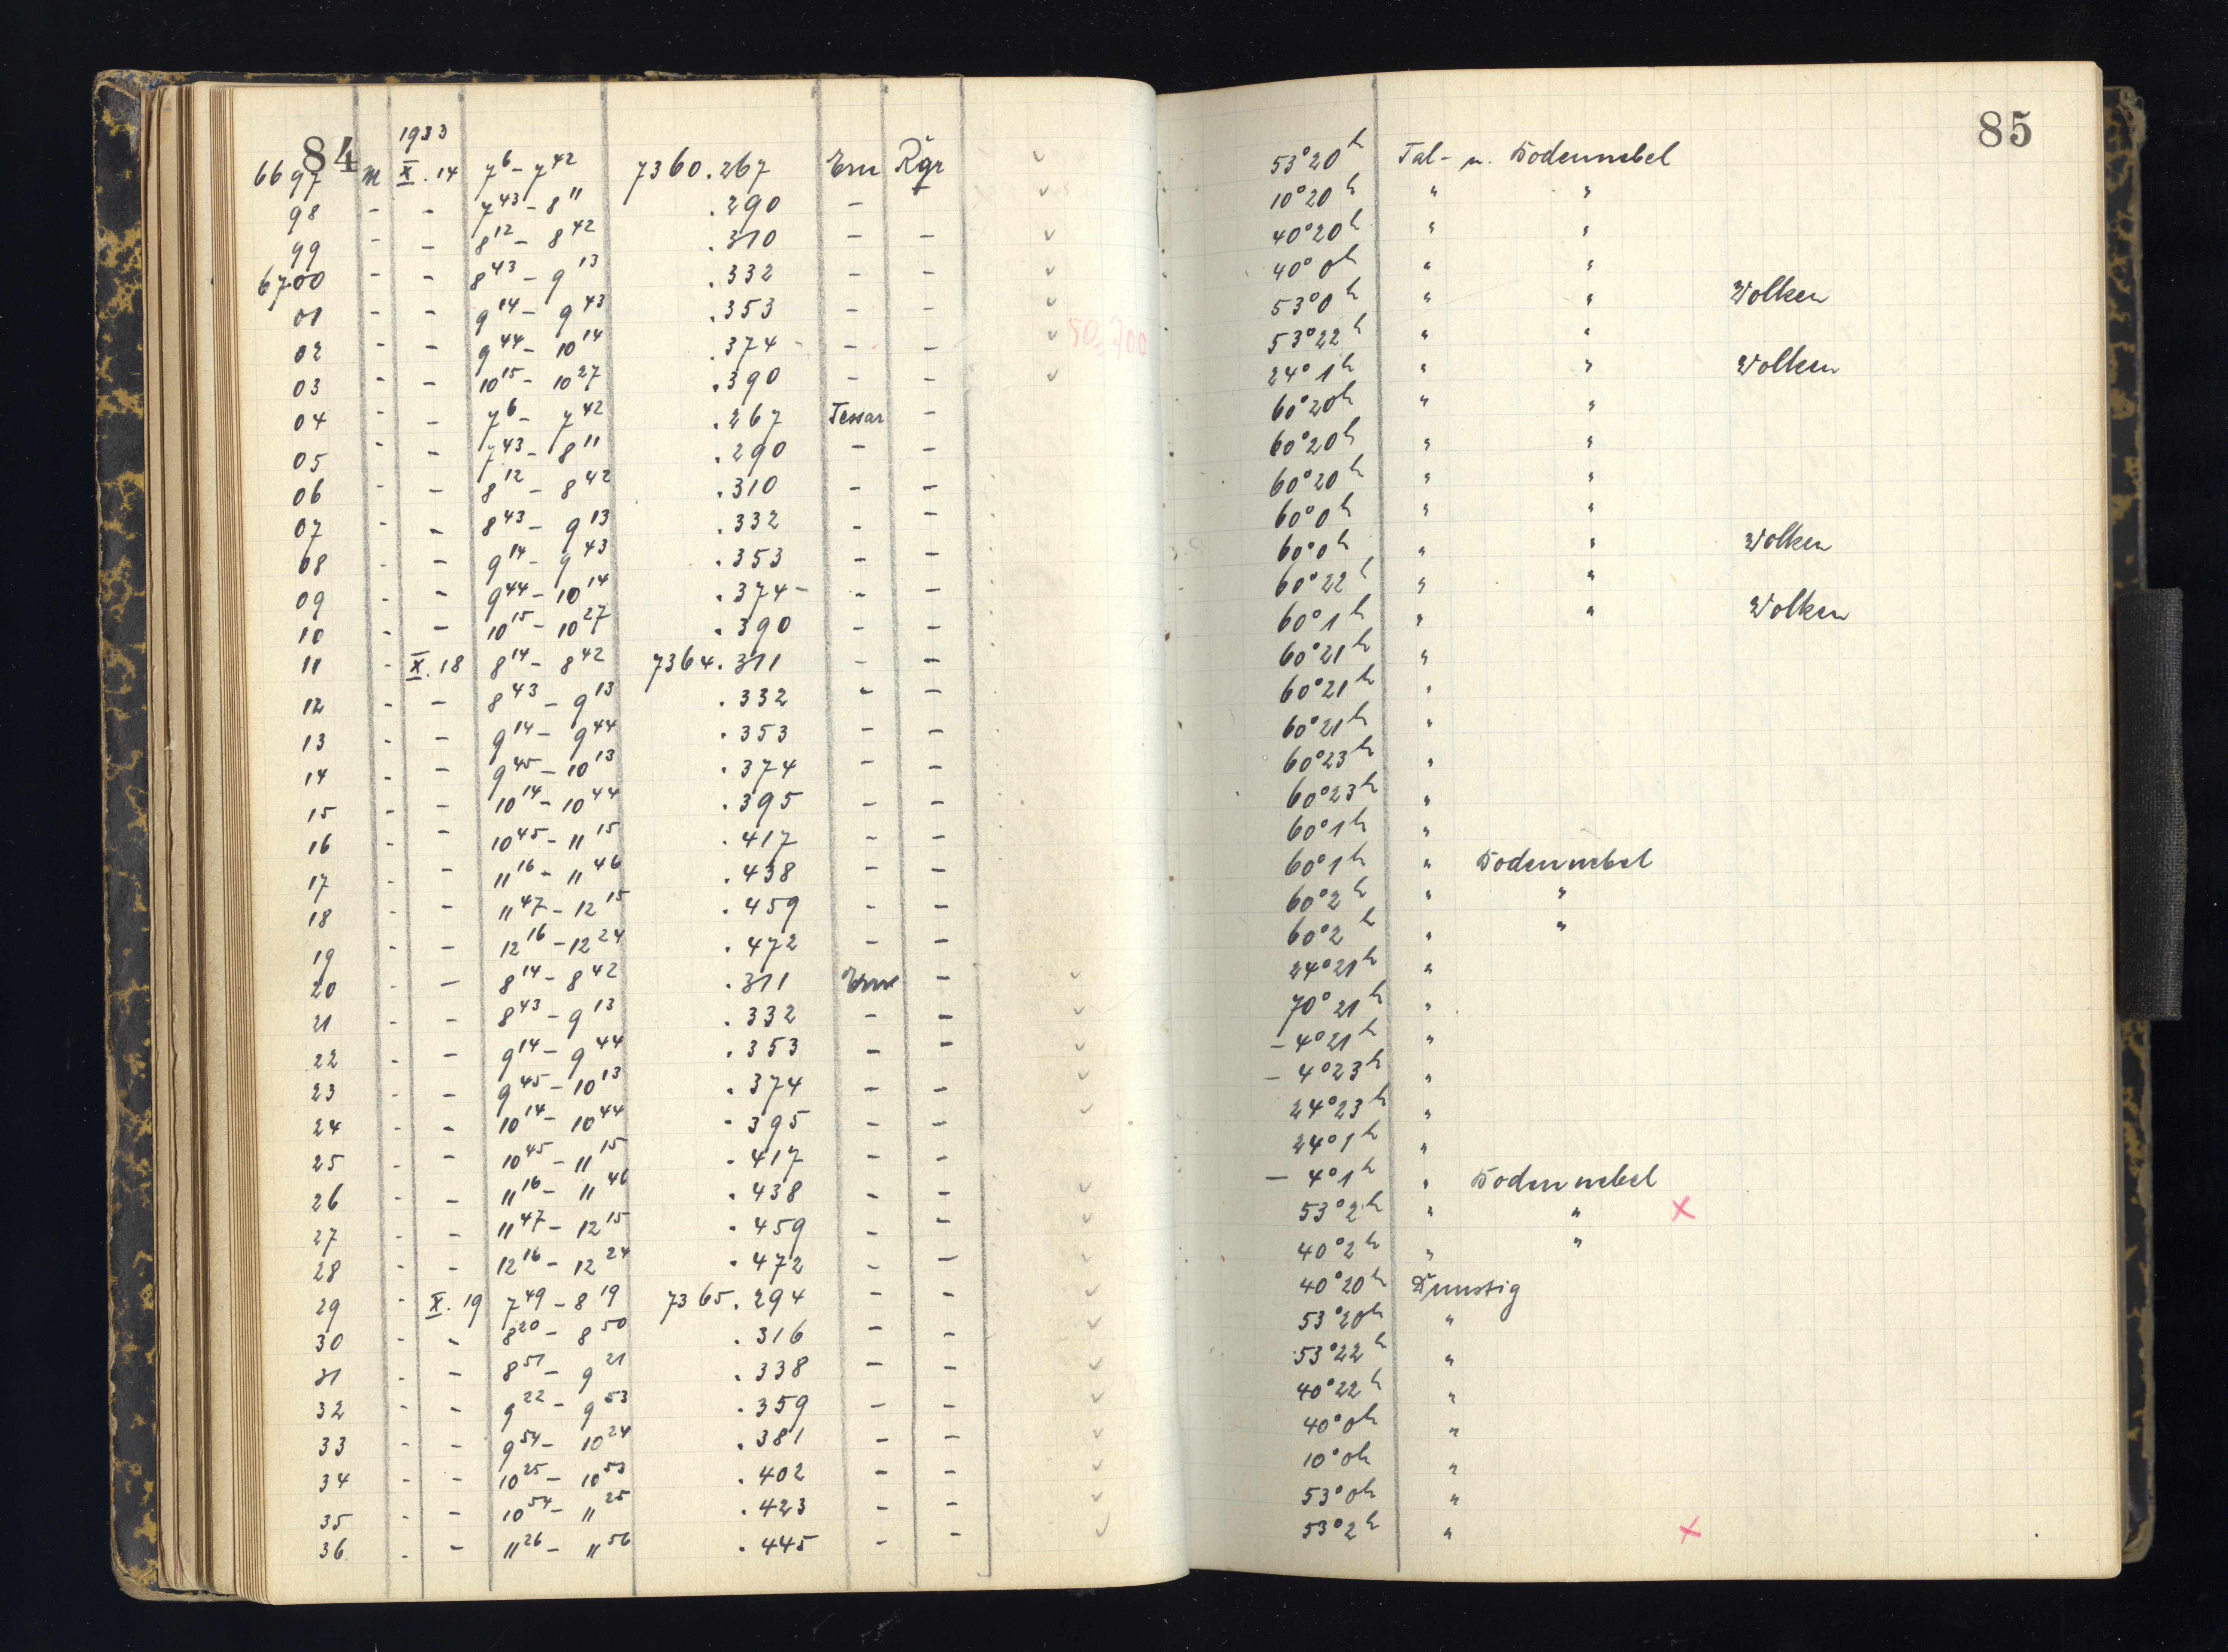 84
1933
6697 M X. 14 7 6 - 7 42 7360.267 Ern Rgr ✓
98 - - 7 43 - 8 11 .290 - ✓
99 - - 8 12 - 8 42 .310 - - ✓
6700 - - 8 43 - 9 13 .332 - - ✓
01 - - 9 14 - 9 43 .353 - - ✓
02 - - 9 44 - 10 14 .374 - - - ✓
03 - - 10 15 - 10 27 .390 - - ✓
04 - - 7 6 - 7 42 .267 Tessar -
05 - - 7 43 - 8 11 .290 - -
06 - - 8 12 - 8 42 .310 - -
07 - - 8 43 - 9 13 .332 - -
08 - - 9 14 - 9 43 .353 - -
09 - - 9 44 - 10 14 .374 - - -
10 - - 10 15 - 10 27 .390 - -
11 - X. 18 8 14 - 8 42 7364.311 - -
12 - - 8 43 - 9 13 .332 - -
13 - - 9 14 - 9 44 .353 - -
14 - - 9 45 - 10 13 .374 - -
15 - - 10 14 - 10 44 .395 - -
16 - - 10 45 - 11 15 .417 - -
17 - - 11 16 - 11 46 .438 - -
18 - - 11 47 - 12 15 .459 - -
19 - - 12 16 - 12 24 .472 - -
20 - - 8 14 - 8 42 .311 Ern - ✓
21 - - 8 43 - 9 13 .332 - - ✓
22 - - 9 14 - 9 44 .353 - - ✓
23 - - 9 45 - 10 13 .374 - - ✓
24 - - 10 14 - 10 44 .395 - - ✓
25 - - 10 45 - 11 15 .417 - -
26 - - 11 16 - 11 46 .438 - - ✓
27 - - 11 47 - 12 15 .459 - - ✓
28 - - 12 16 - 12 24 .472 - - ✓
29 - X. 19 7 49 - 8 19 7365.294 - - ✓
30 - - 8 20 - 8 50 .316 - - ✓
31 - - 8 51 - 9 21 .338 - - ✓
32 - - 9 22 - 9 53 .359 - - ✓
33 - - 9 54 - 10 24 .381 - - ✓
34 - - 10 25 - 10 53 .402 - - ✓
35 - - 10 54 - 11 25 .423 - - ✓
36 - - 11 26 - 11 56 .445 - - ✓
85
53° 20h Tal- u. Bodennebel
10° 20h " "
40° 20h " "
40° 0h " "
53° 0h " " Wolken
53° 22h " "
24° 1h " " Wolken
60° 20h " "
60° 20h " "
60° 20h " "
60° 0h " "
60° 0h " " Wolken
60° 22h " "
60° 1h " " Wolken
60° 21h "
60° 21h "
60° 21h "
60° 23h "
60° 23h "
60° 1h "
60° 1h " Bodennebel
60° 2h " "
60° 2h " "
24° 21h "
70° 21h "
- 4° 21h "
- 4° 23h "
24° 23h "
24° 1h "
- 4° 1h " Bodennebel
53° 2h " " ×
40° 2h " "
40° 20h Dunstig
53° 20h "
53° 22h "
40° 22h "
40° 0h "
10° 0h "
53° 0h "
53° 2h " ×